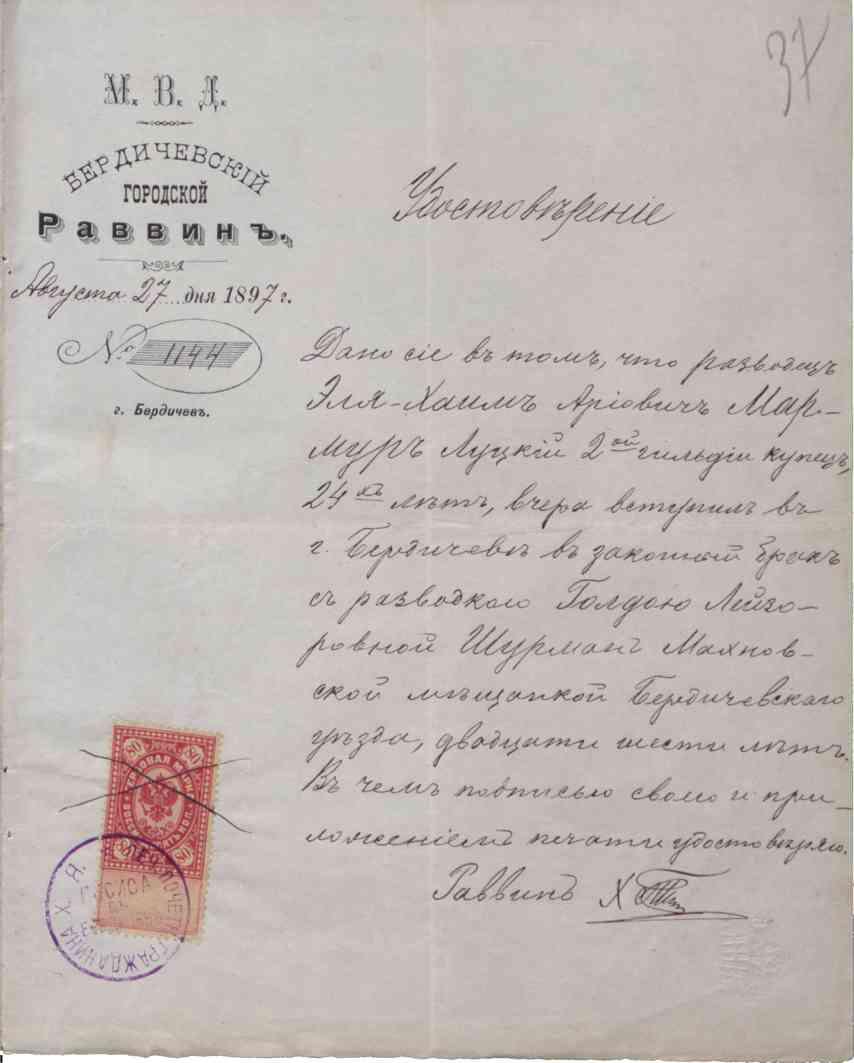 37
М. В. Д.
БЕРДИЧЕВСКІЙ
ГОРОДСКОЙ
Раввинъ.
Августа 27 дня 1897 г.
№ 1144
г. Бердичевъ.
Удостовѣреніе
Дано сіе въ томъ, что разводецъ
Эля-Хаимъ Аріовичъ Мар-
муръ Луцкій 2ой гильдіи купецъ,
24хъ лѣтъ, вчера вступилъ въ
г. Бердичевѣ въ законный бракъ
съ разводкою Голдою Лейзо-
ровной Шурманъ Махнов-
ской мѣщанкой Бердичевскаго
уѣзда, двадцати шести лѣтъ.
Въ чемъ подписью своею и при-
ложеніемъ печати удостовѣряю.
Раввинъ Х
80 80
ГЕРБОВАЯ МАРКА
80 80
ПОЧЕТ. ГРАЖДАНИНА Х. Я.